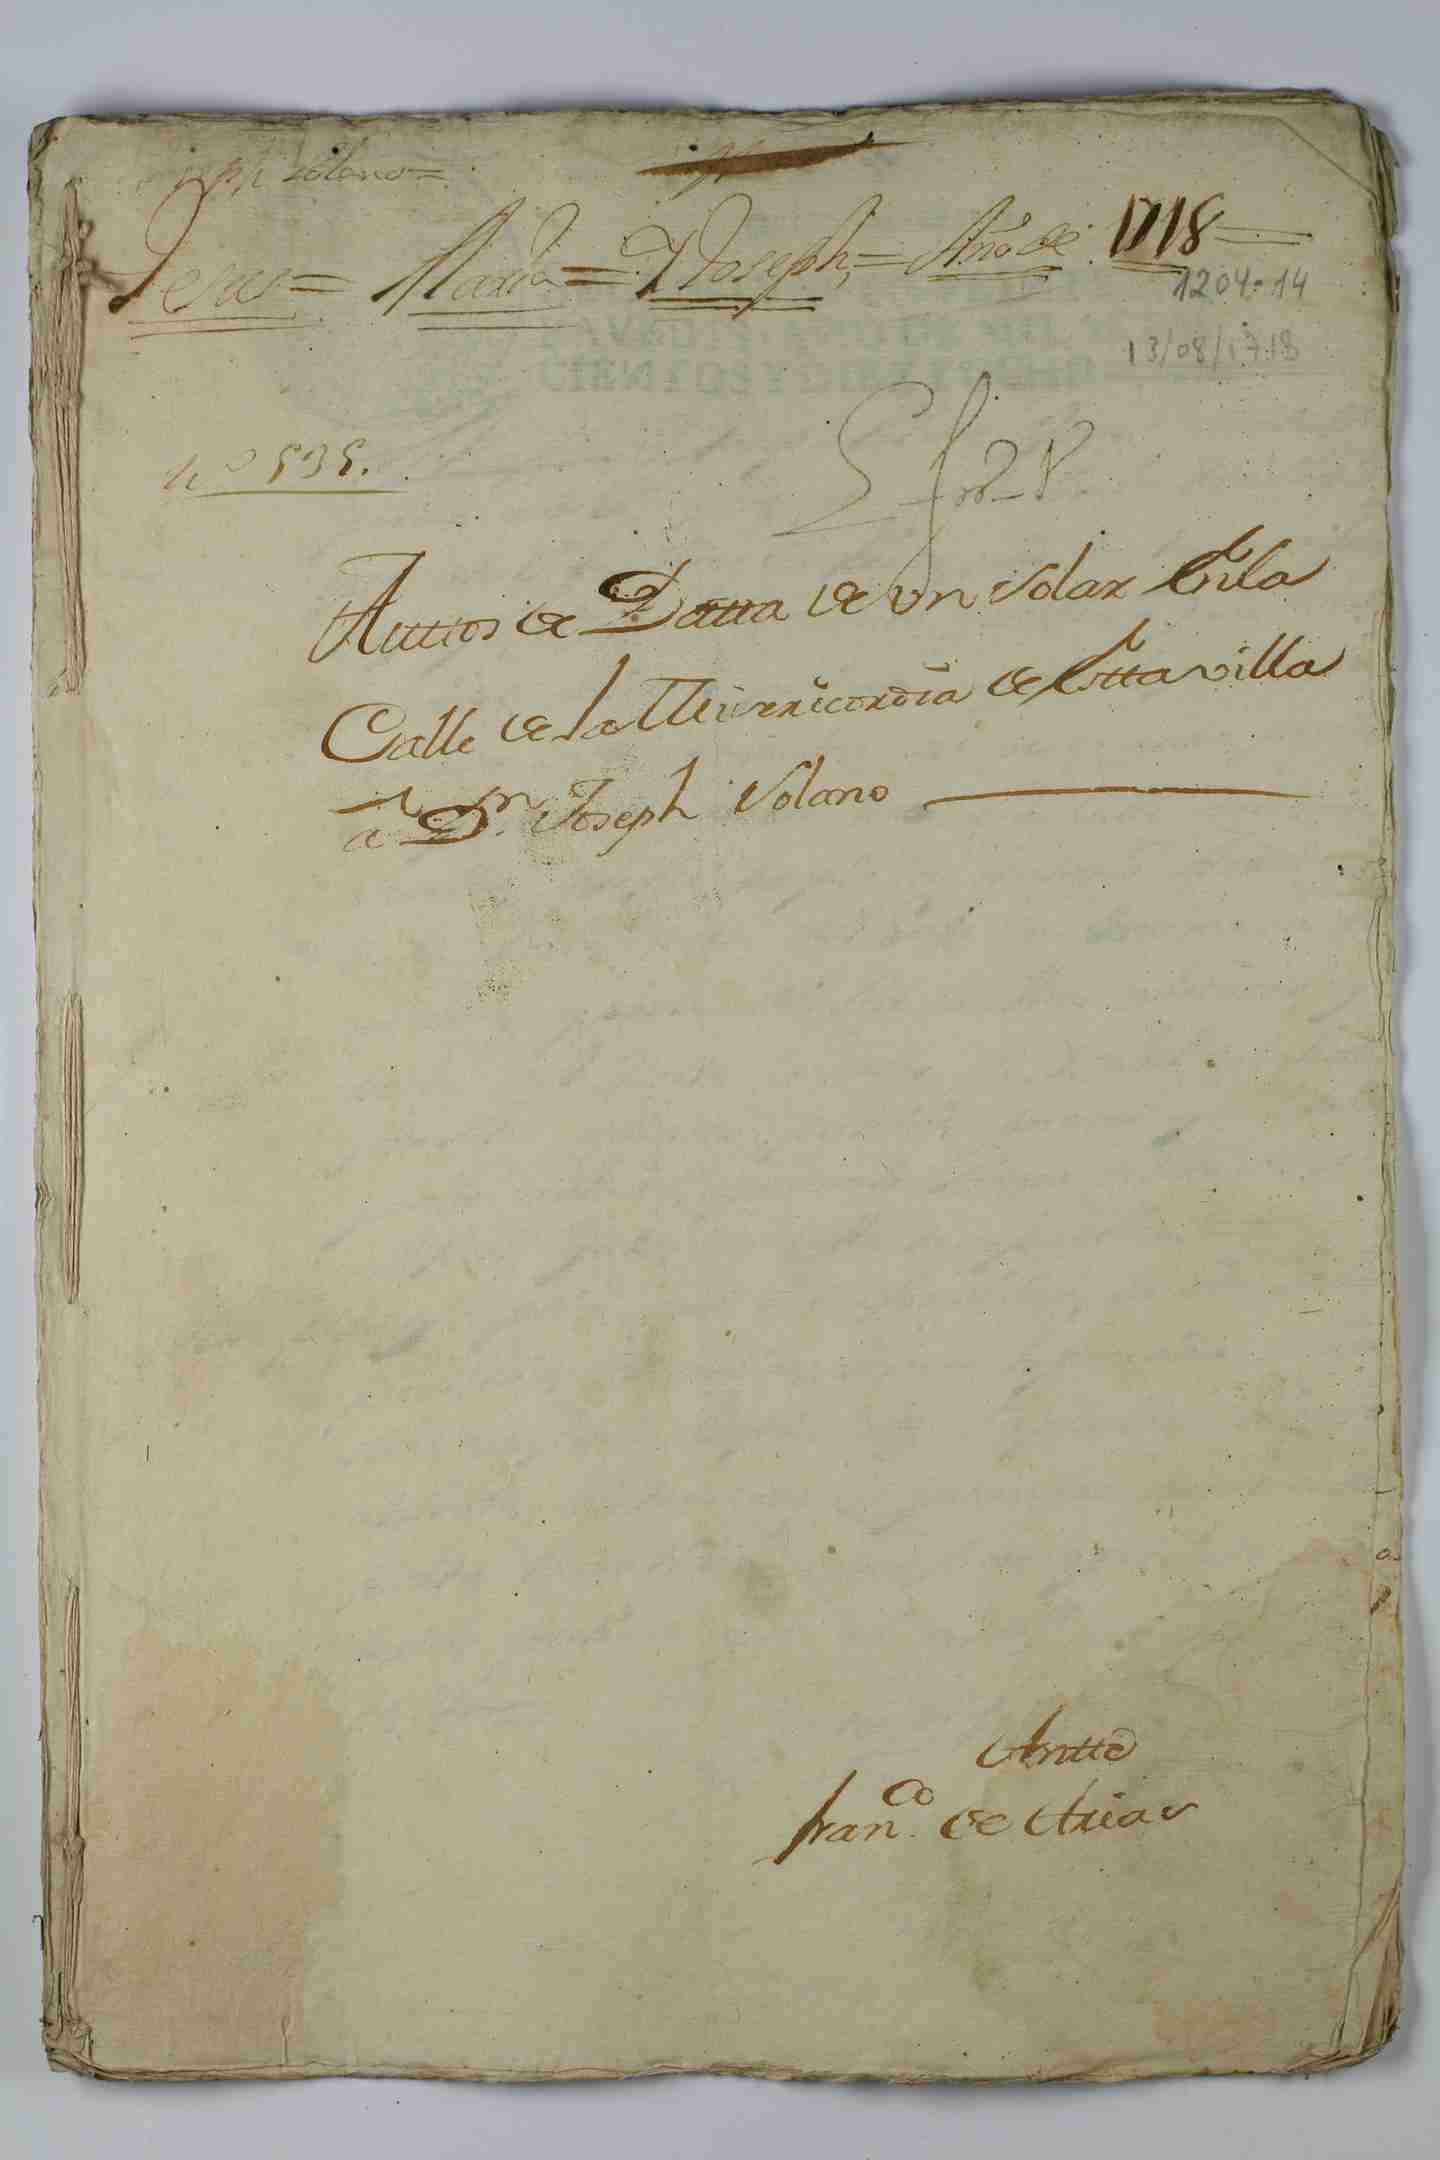 Joseph Solano =
Jesus = Maria = Y Joseph, = Año de 1718 =
1204-14
13/08/1718
CIENTOS Y DIEZ Y OCHO
no 535.
Auttos de Datta de vn solar En la
Calle de la Misericordia de Estta villa
a Dn. Joseph Solano
Antte
fran.co de Arias